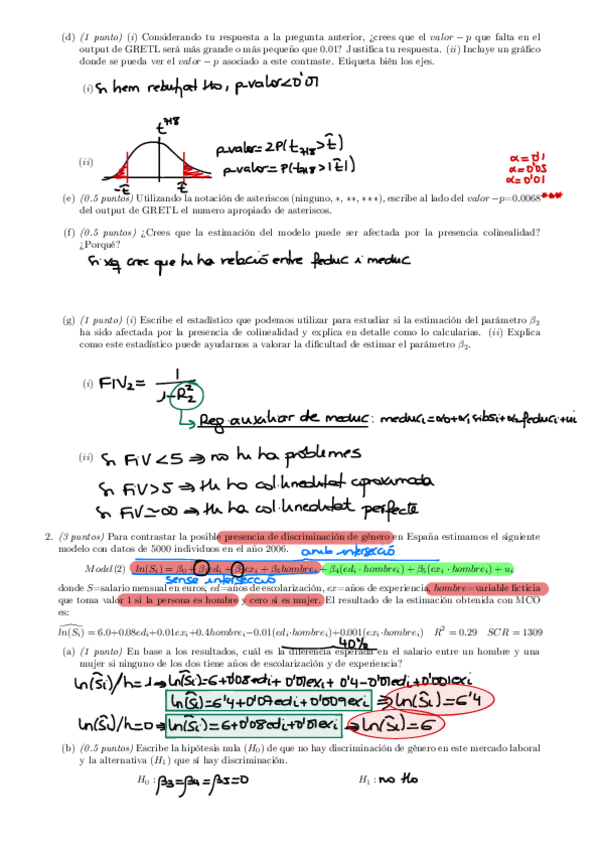 (d) (1 punto) (i) Considerando tu respuesta a la pregunta anterior, ¿crees que el valor − p que falta en el
output de GRETL será más grande o más pequeño que 0.01? Justifica tu respuesta. (ii) Incluye un gráfico
donde se pueda ver el valor − p asociado a este contraste. Etiqueta bién los ejes.
(i) Si hem rebutjat H0, p-valor<0'01
t718
p-valor=2P(t718>t̂)
p-valor=P(t718>|t̂|)
(ii)
-t̂ t̂
α=0'1
α=0'05
α=0'01
(e) (0.5 puntos) Utilizando la notación de asteriscos (ninguno, ∗, ∗∗, ∗∗∗), escribe al lado del valor −p=0.0068***
del output de GRETL el numero apropiado de asteriscos.
(f) (0.5 puntos) ¿Crees que la estimación del modelo puede ser afectada por la presencia colinealidad?
¿Porqué?
Si xq crec que hi ha relació entre feduc i meduc
(g) (1 punto) (i) Escribe el estadístico que podemos utilizar para estudiar si la estimación del parámetro β2
ha sido afectada por la presencia de colinealidad y explica en detalle como lo calcularias. (ii) Explica
como este estadístico puede ayudarnos a valorar la dificultad de estimar el parámetro β2.
(i) FIV2 = 1/(1-R²2)
Reg. auxiliar de meduc: meduci=α0+α1sibsi+α2feduci+ui
(ii) Si FIV<5 ⇒ no hi ha problemes
Si FIV>5 ⇒ hi ha col·linealitat aproximada
Si FIV≃∞ ⇒ hi ha col·linealitat perfecte
2. (3 puntos) Para contrastar la posible presencia de discriminación de género en España estimamos el siguiente
modelo con datos de 5000 individuos en el año 2006.
amb intersecció
Model(2) ln(Si) = β0 + β1edi + β2exi + β3hombrei + β4(edi · hombrei) + β5(exi · hombrei) + ui
sense intersecció
donde S=salario mensual en euros, ed=años de escolarización, ex=años de experiencia, hombre=variable ficticia
que toma valor 1 si la persona es hombre y cero si es mujer. El resultado de la estimación obtenida con MCO
es:
ln(Si) = 6.0+0.08edi+0.01exi+0.4hombrei−0.01(edi·hombrei)+0.001(exi·hombrei) R² = 0.29 SCR = 1309
40%
(a) (1 punto) En base a los resultados, cuál es la diferencia esperada en el salario entre un hombre y una
mujer si ninguno de los dos tiene años de escolarización y de experiencia?
ln(Ŝi)/h=1→ln(Ŝi)=6+0'08edi+0'01exi+0'4-0'01edi+0'001exi
ln(Ŝi)=6'4+0'07edi+0'009exi ⇒ ln(Ŝi)=6'4
ln(Ŝi)/h=0⇒ln(Ŝi)=6+0'08edi+0'01exi ⇒ ln(Ŝi)=6
(b) (0.5 puntos) Escribe la hipótesis nula (H0) de que no hay discriminación de género en este mercado laboral
y la alternativa (H1) que sí hay discriminación.
H0 : β3=β4=β5=0 H1 : no H0